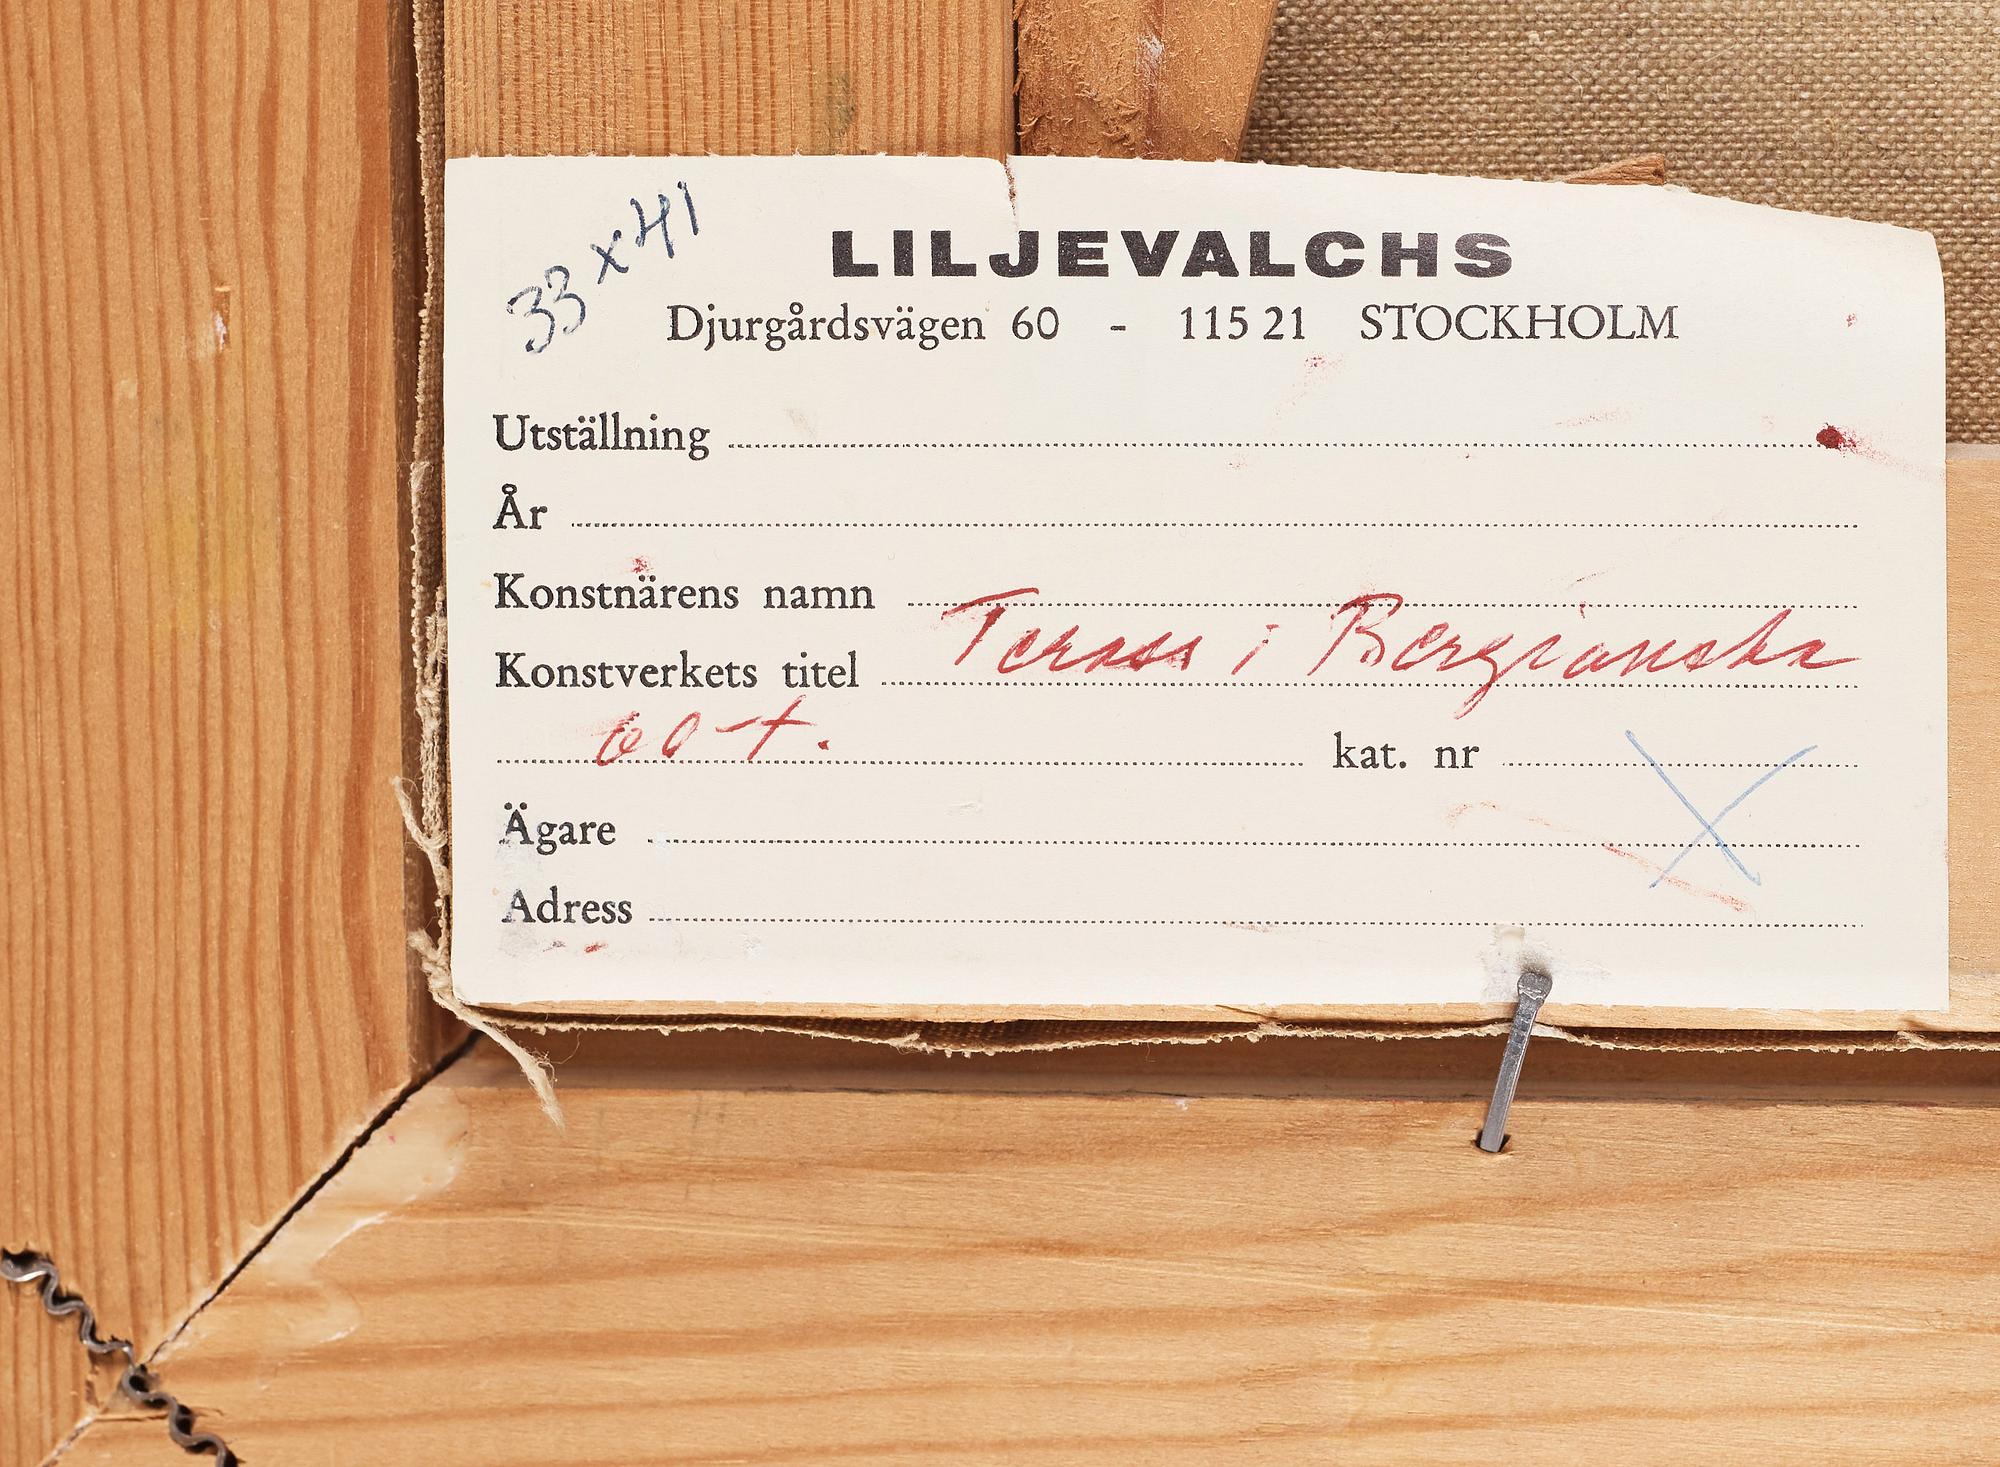 33 x 41
LILJEVALCHS
Djurgårdsvägen 60 - 115 21 STOCKHOLM
Utställning
År
Konstnärens namn
Konstverkets titel Terass i Bergianska
60-t. kat. nr
Ägare
Adress